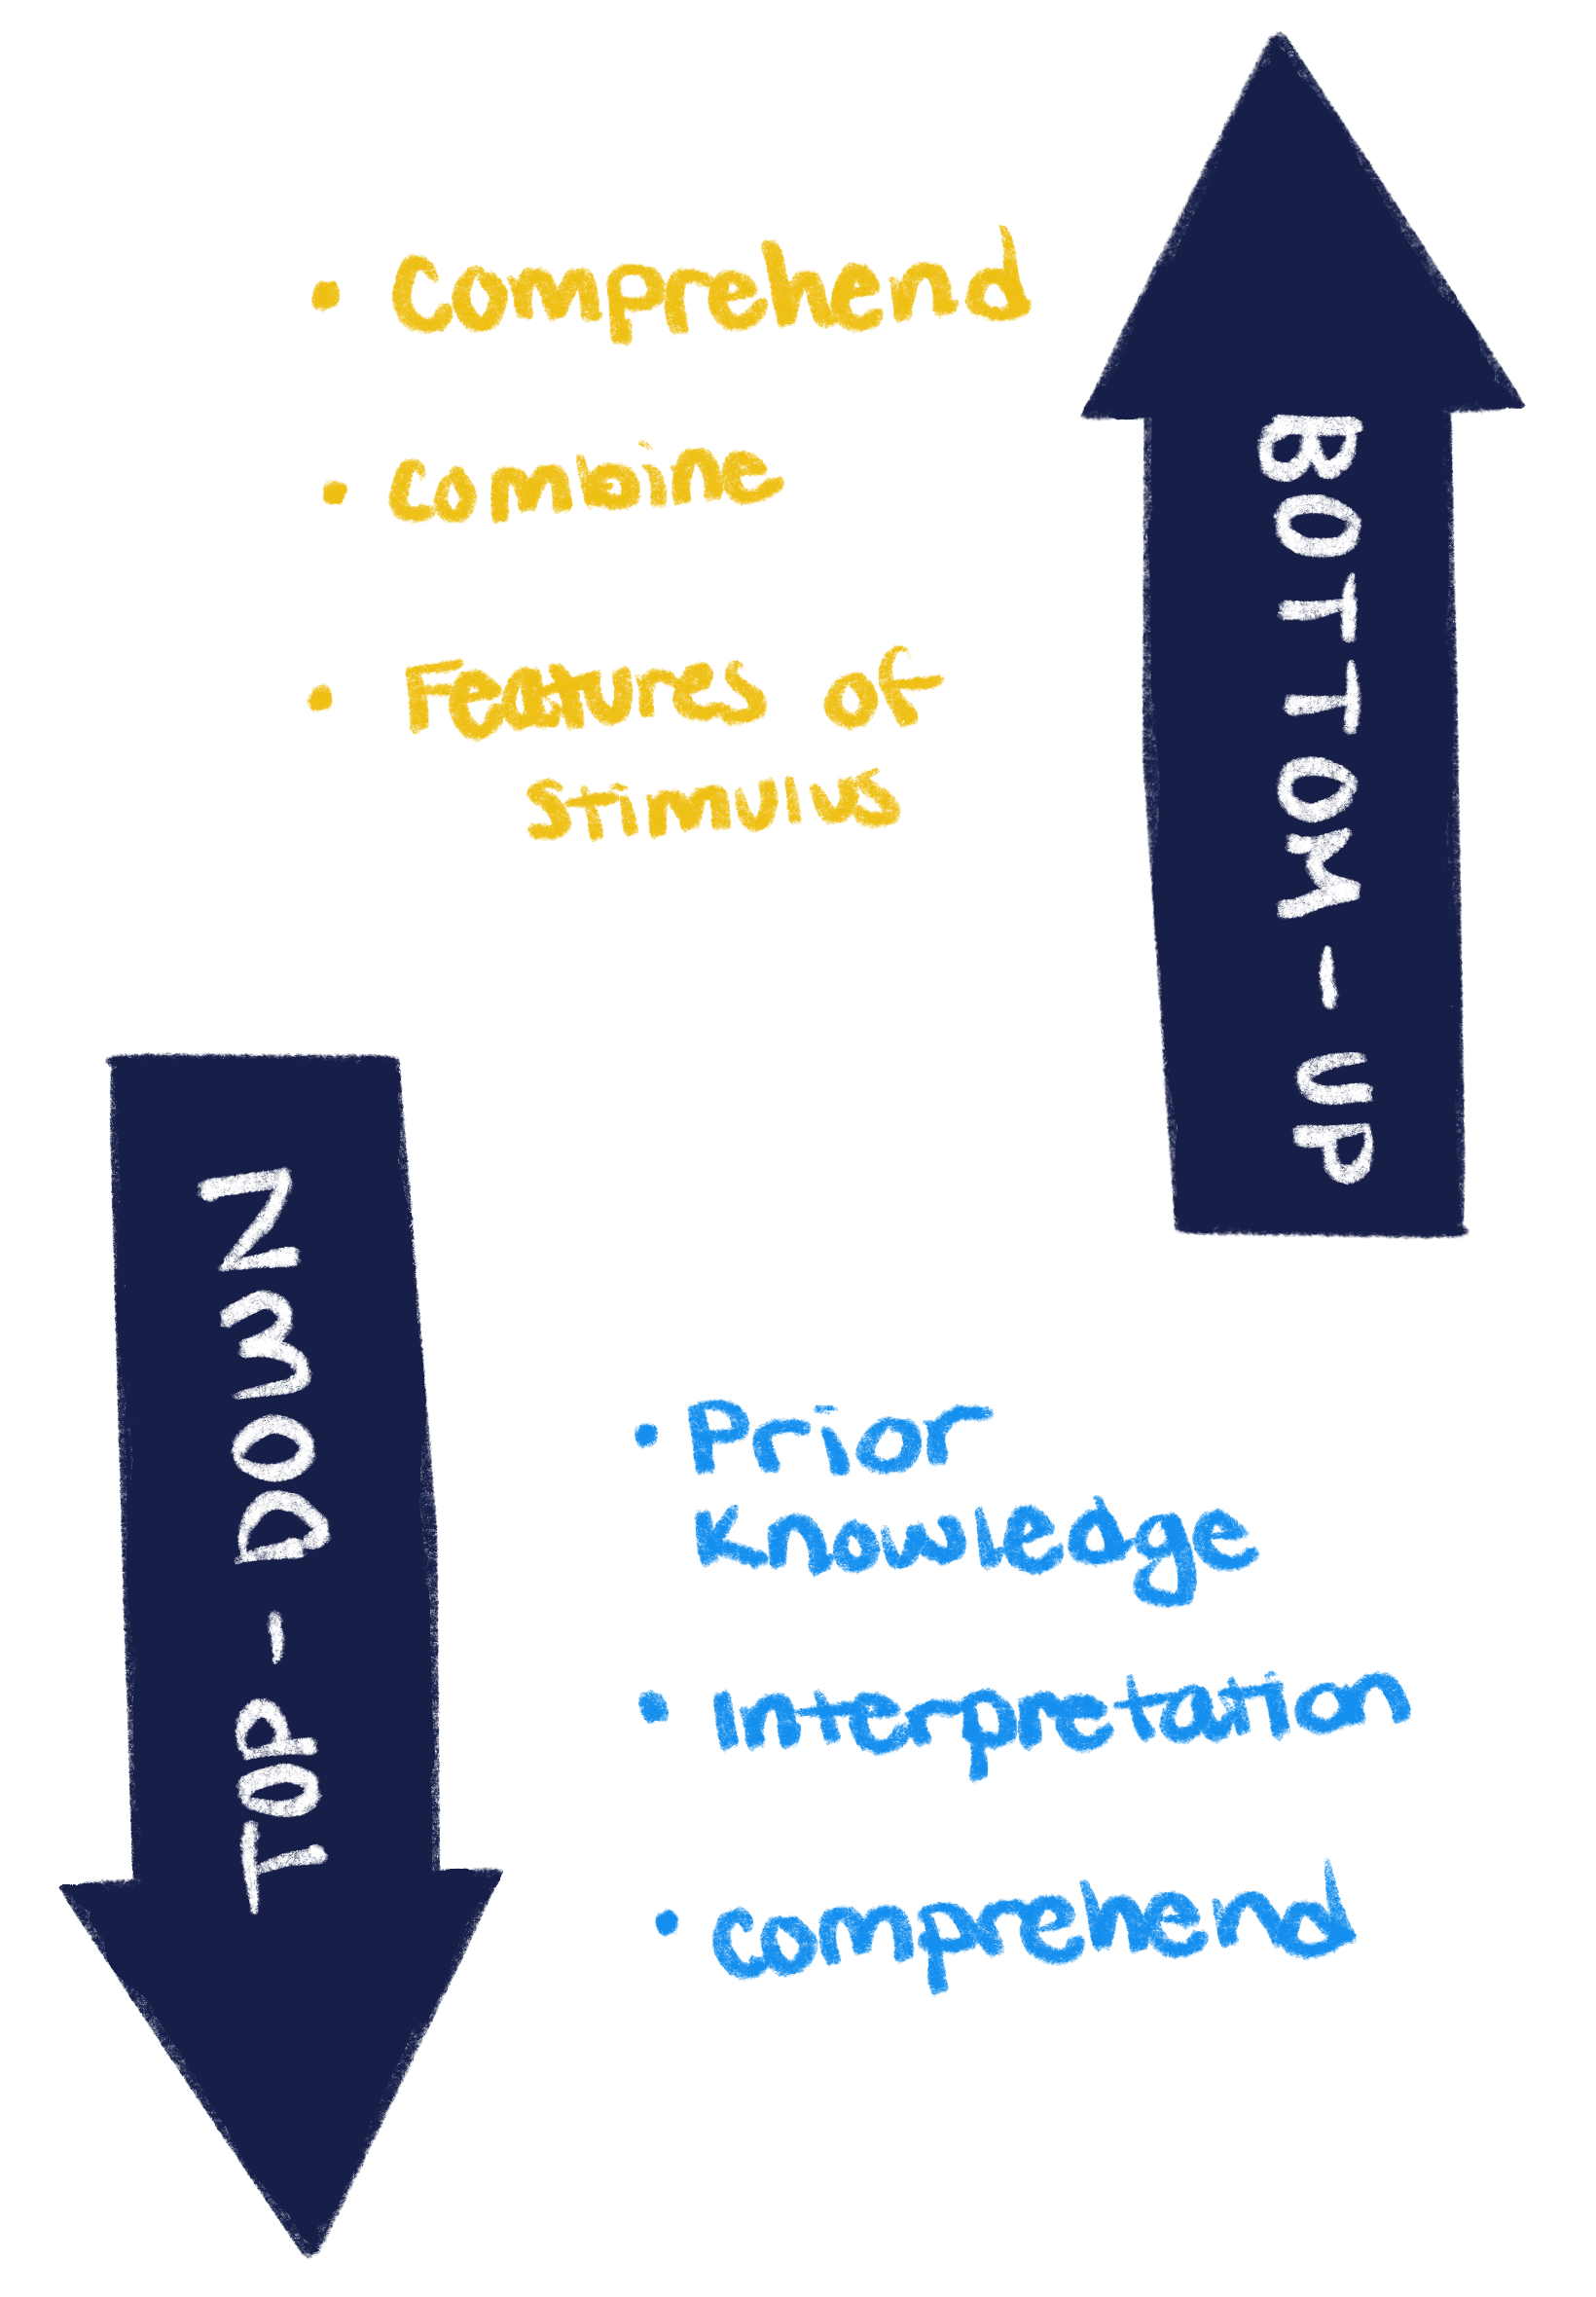 • Comprehend
• Combine
• Features of
stimulus
BOTTOM-UP
TOP-DOWN
• Prior
Knowledge
• Interpretation
• comprehend